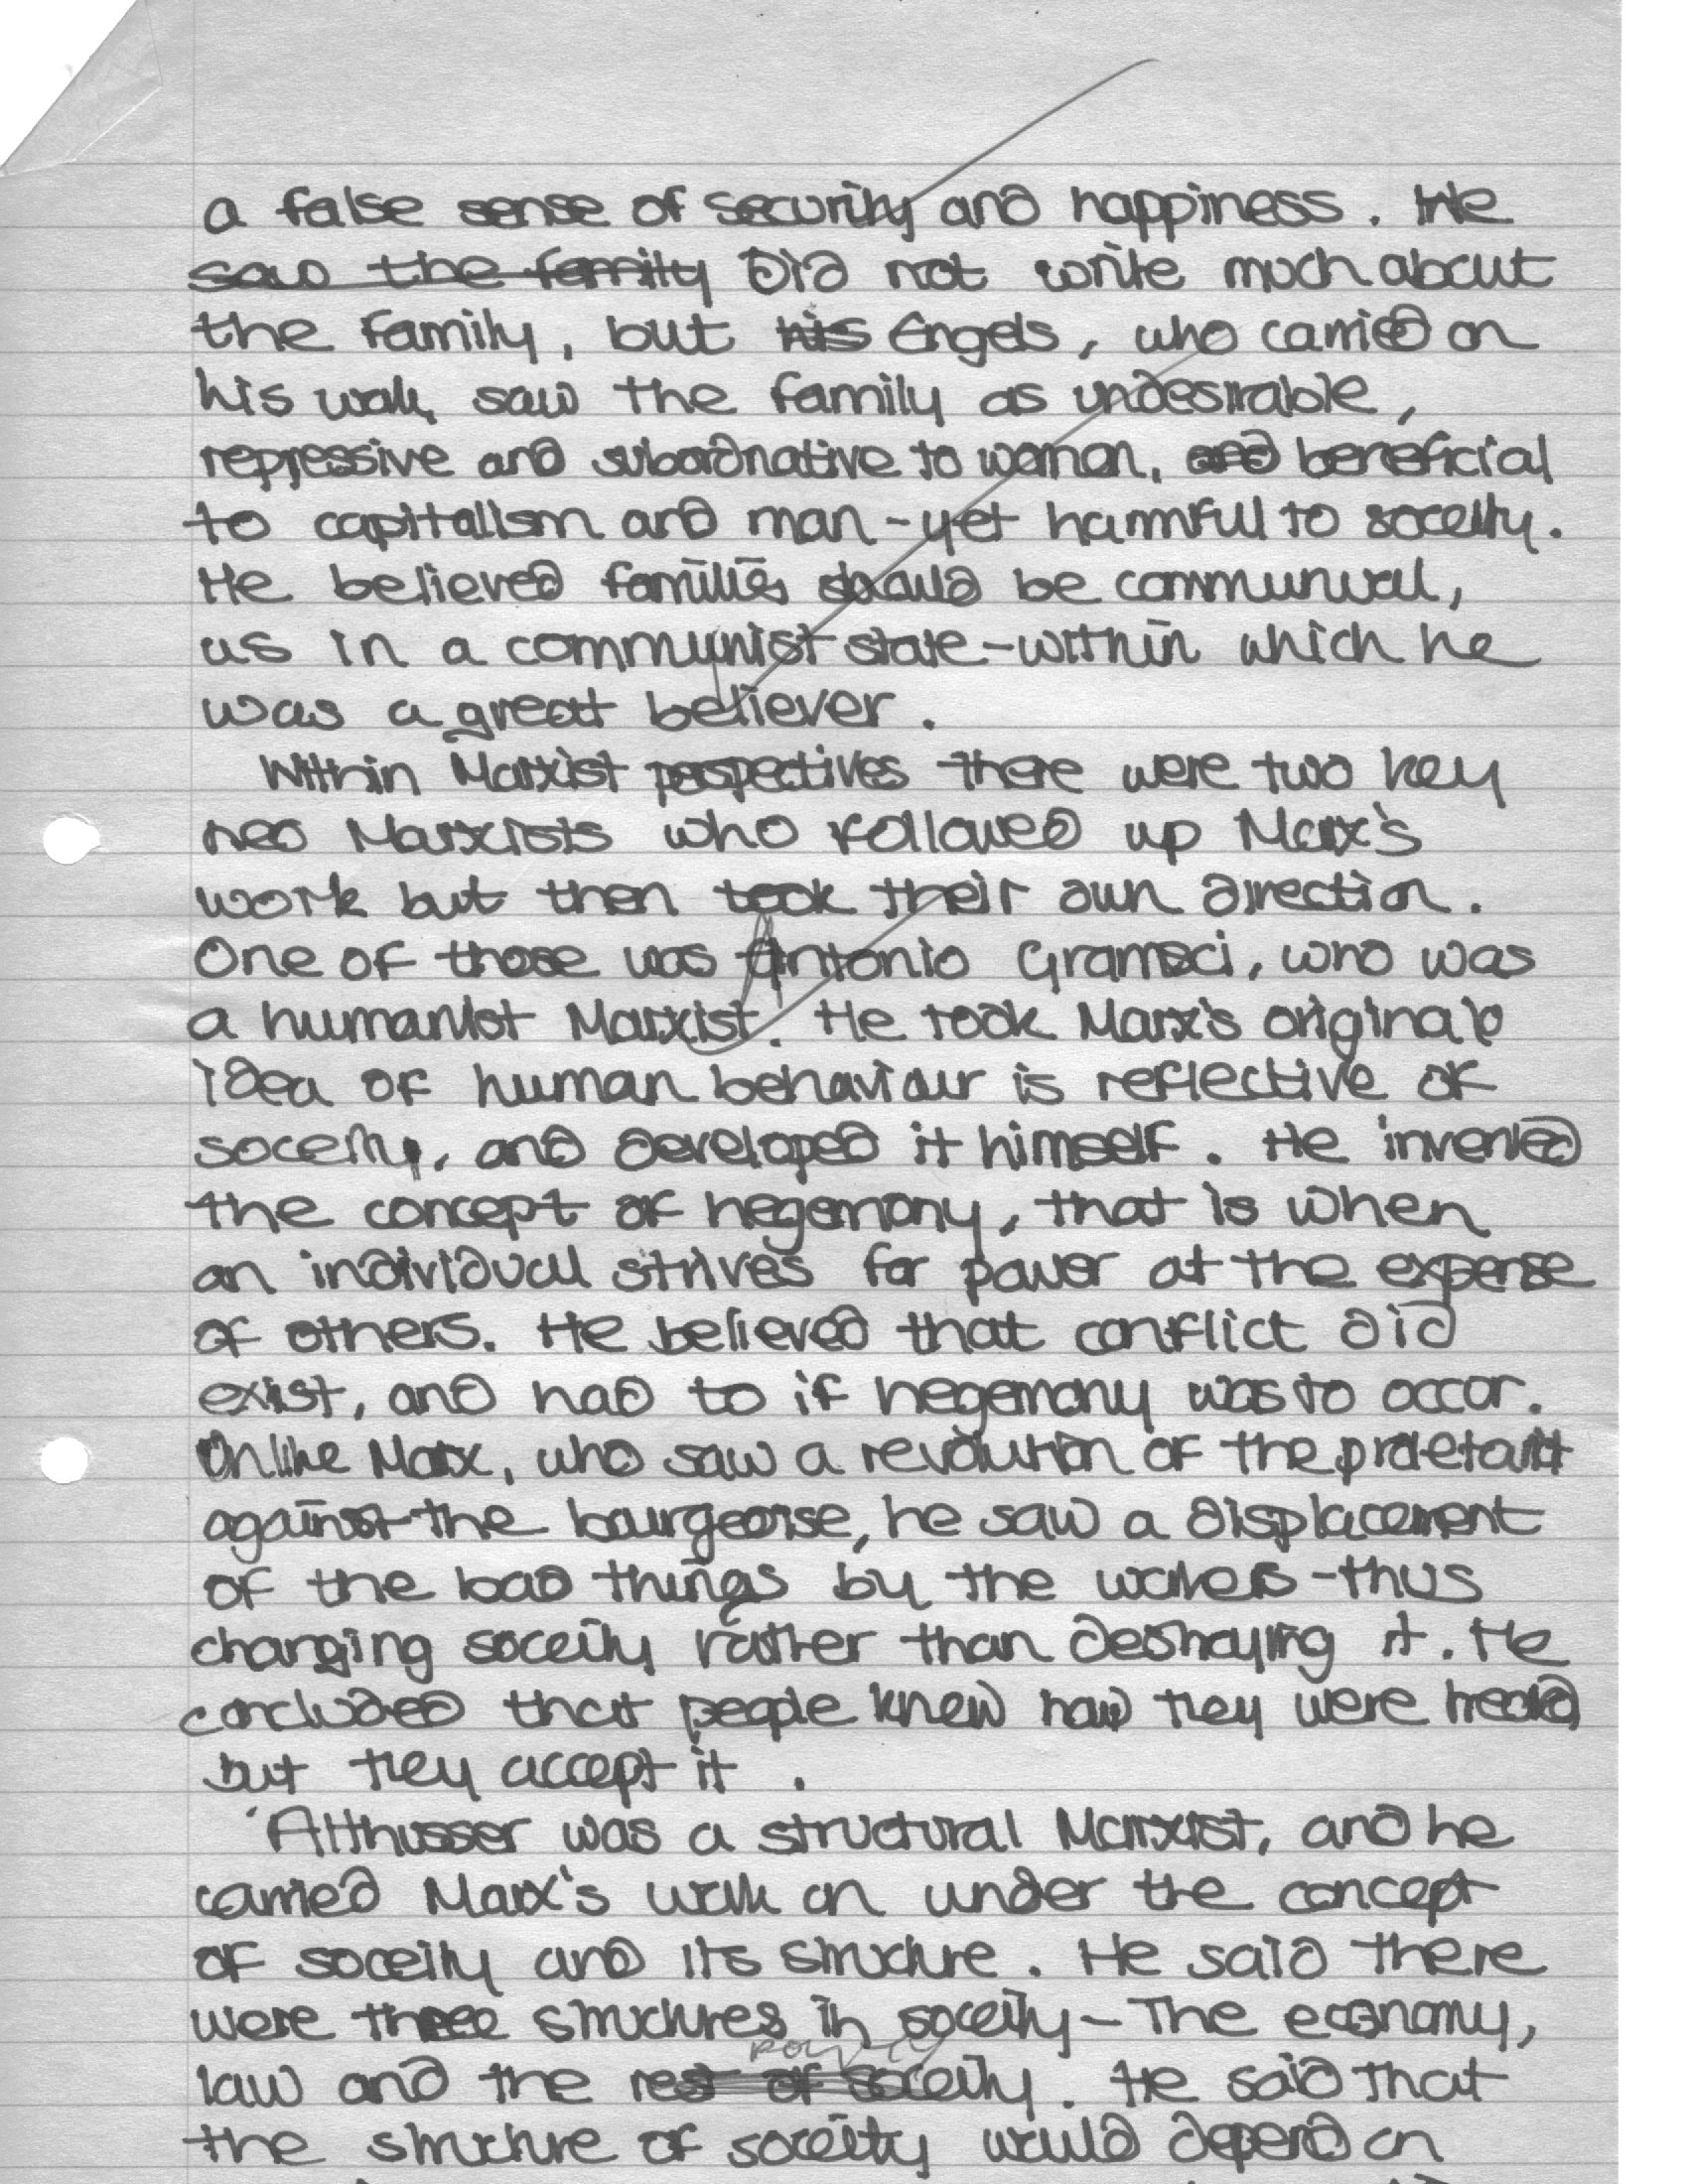 a false sense of security and happiness. He
saw the family Did not write much about
the family, but his Engels, who carried on
his work, saw the family as undesirable,
repressive and subordnative to women, and beneficial
to capitalism and man - yet harmful to soceity.
He believed families should be communual,
as in a communist state - within which he
was a great believer.
Within Marxist perspectives there were two key
neo Marxists who followed up Marx's
work but then took their own direction.
One of those was Antonio Gramsci, who was
a humanist Marxist. He took Marx's original
idea of human behaviour is reflective of
soceity, and developed it himself. He invented
the concept of hegemony, that is when
an individual strives for power at the expense
of others. He believed that conflict did
exist, and had to if hegemony was to occor.
Unlike Marx, who saw a revolution of the proletariat
against the bourgeorise, he saw a displacement
of the bad things by the workers - thus
changing soceity rather than destroying it. He
concluded that people knew how they were
but they accept it.
Althusser was a structural Marxist, and he
carried Marx's work on under the concept
of soceity and its structure. He said there
were three structures in soceity - The economy,
law and the rest of soceity. He said that
the structure of soceity would depend on